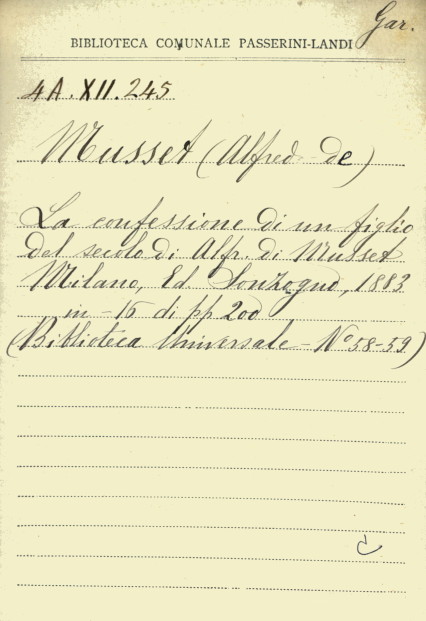 Gar.
BIBLIOTECA COMUNALE PASSERINI-LANDI
4A.XII.245
Musset (Alfred de)
La confessione di un figlio
del secolo di Alfr. di Musset
Milano, Ed. Sonzogno, 1883
in-16 di pp 200
(Biblioteca Universale - Nº 58-59)